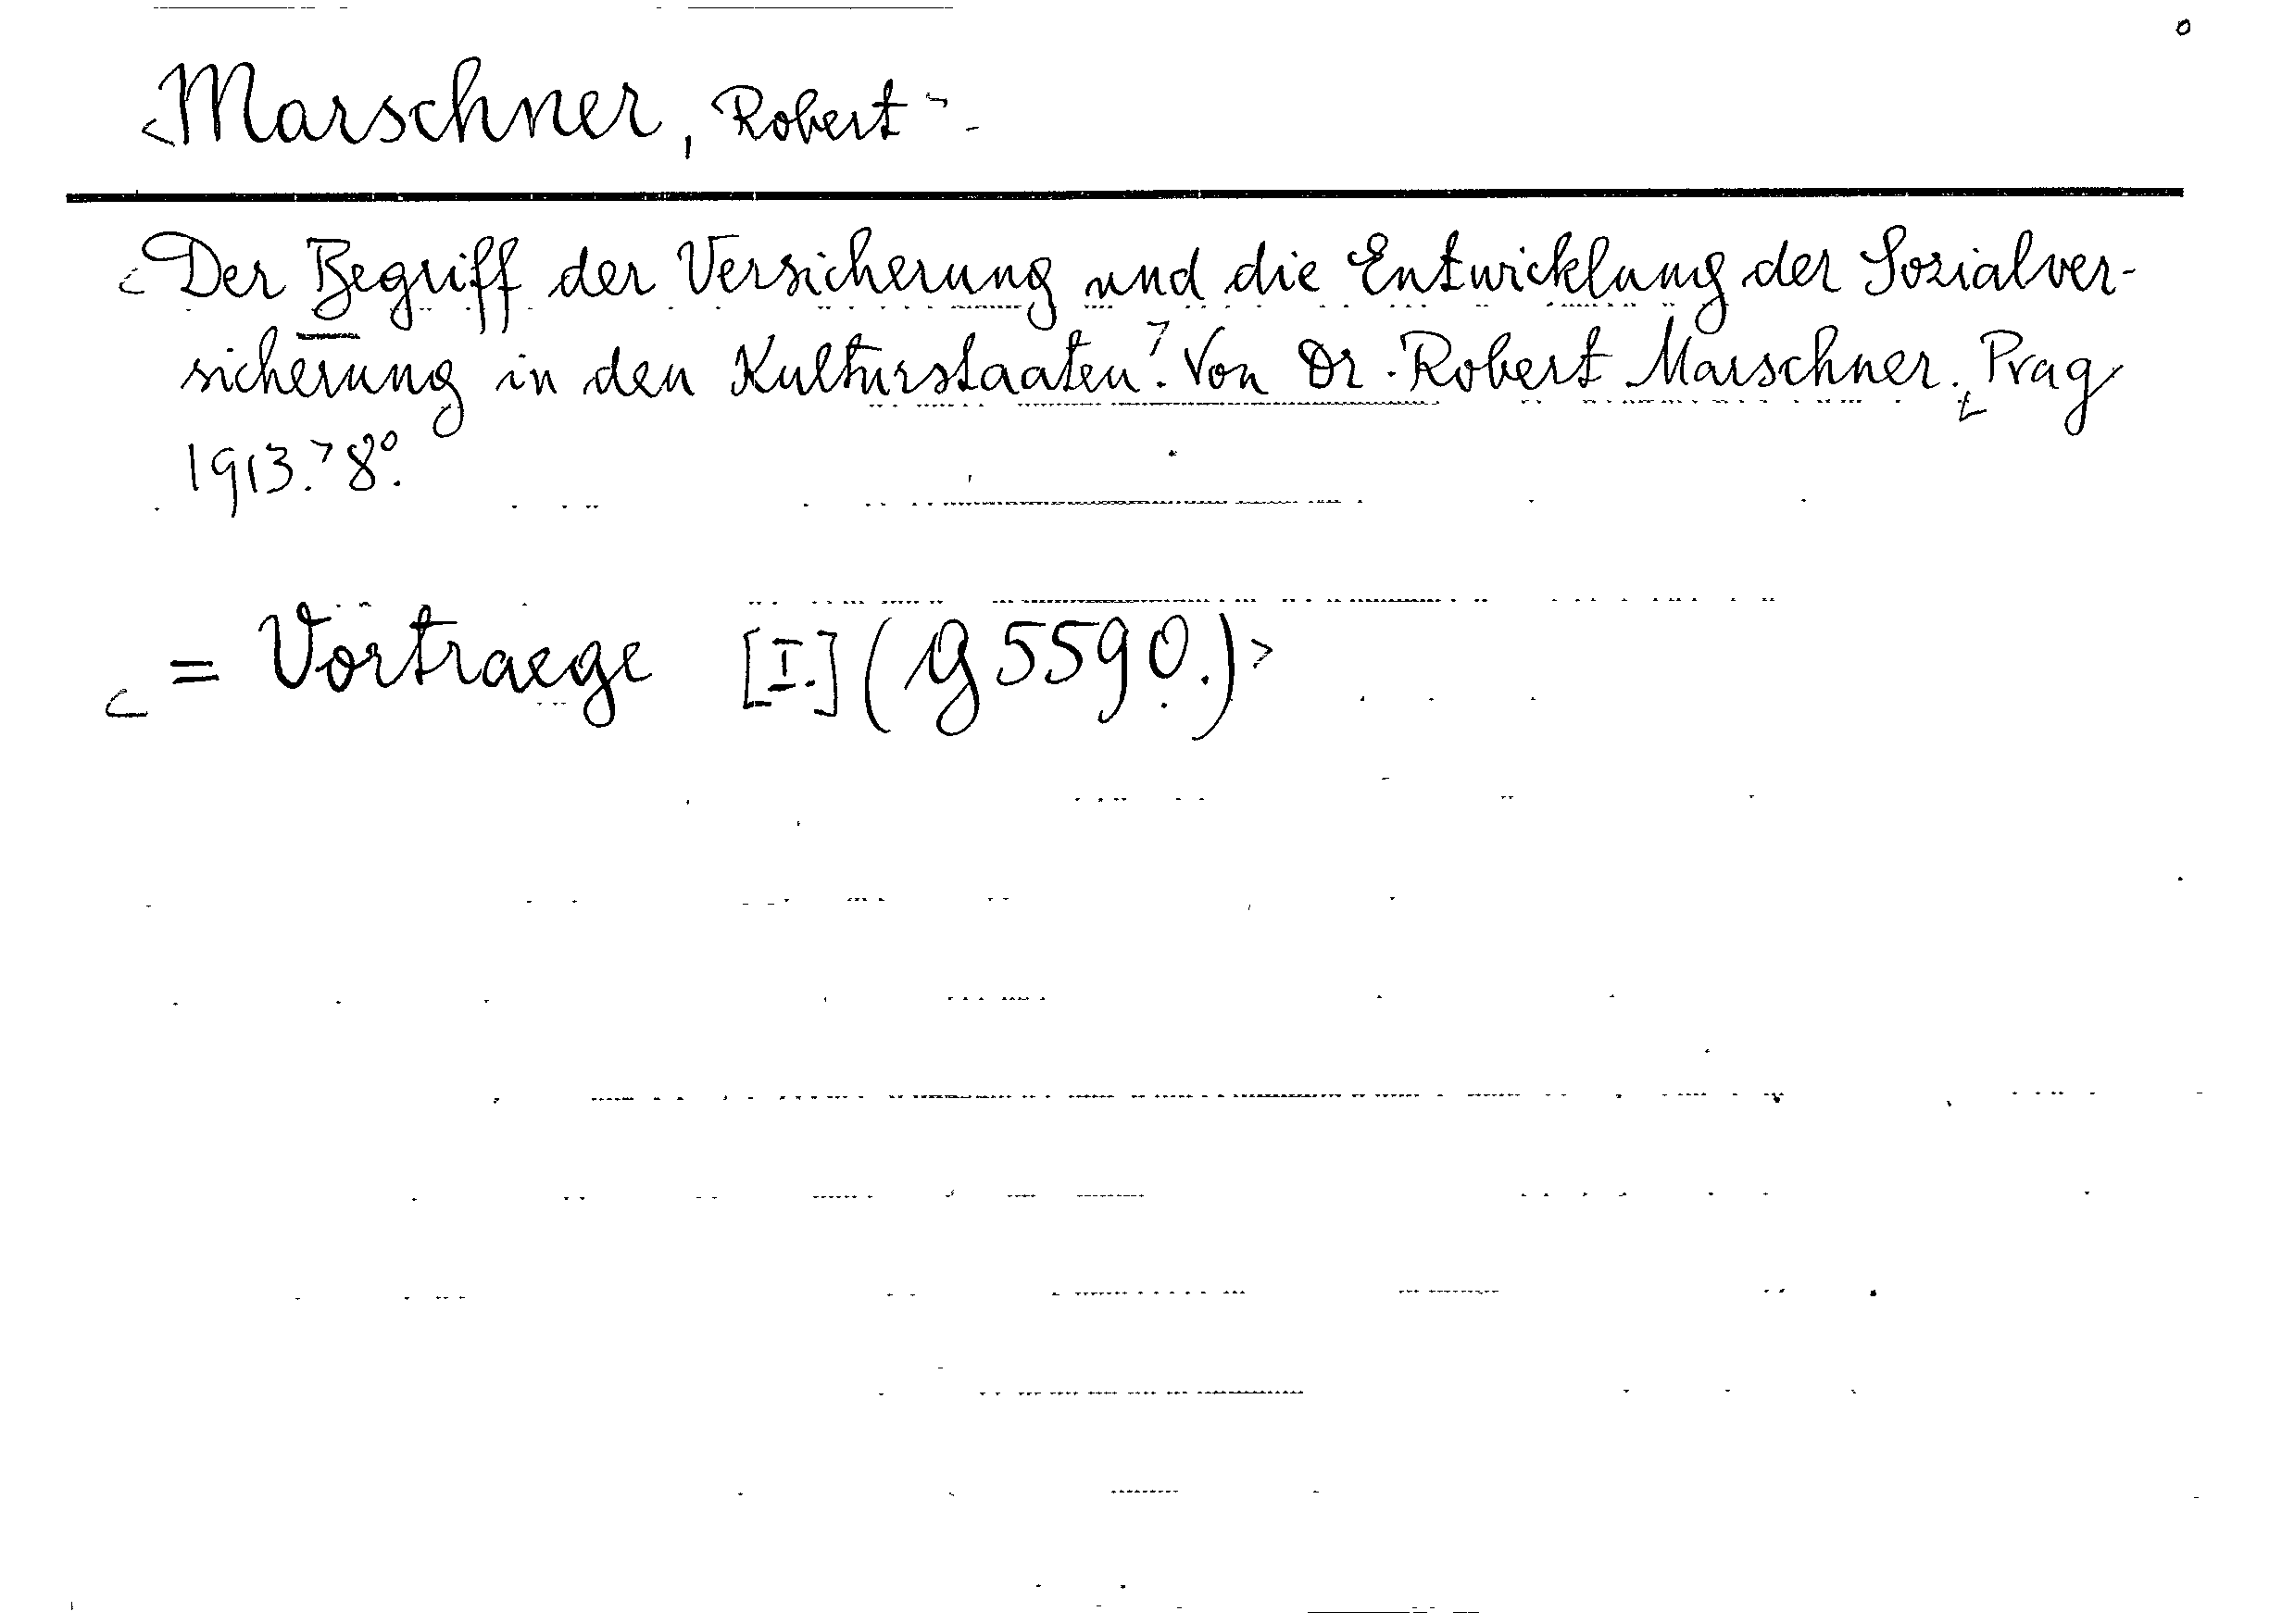 <Marschner, Robert>
<Der Begriff der Versicherung und die Entwicklung der Sozialver-
sicherung in den Kulturstaaten>. Von Dr. Robert Marschner. <Prag
1913.> 8°.
<= Vortraege [I.] (g 5590.)>